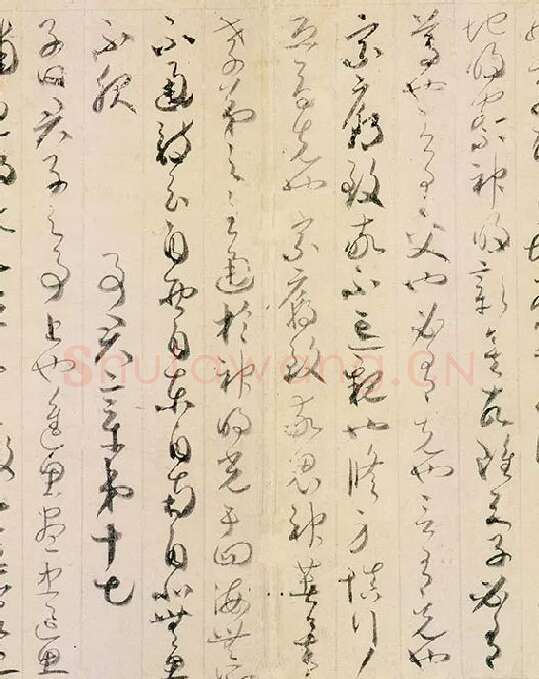 地明察神明彰矣故雖天子必有
尊也言有父也必有先也言有兄也
宗廟致敬不忘親也脩身慎行
恐辱先也宗廟致敬鬼神著矣
孝弟之至通於神明光于四海無所
不通詩云自西自東自南自北無思
不服 事君章第十七
子曰君子之事上也進思盡忠退思
Shufawang.CN